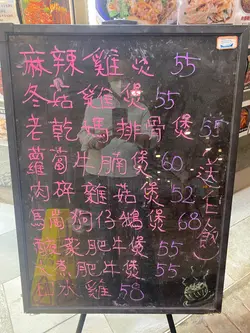 麻辣雞煲 55
冬菇雞煲 55
老乾媽排骨煲 55
蘿蔔牛腩煲 60
肉碎雜菇煲 52
馬蹄狗仔鵝煲 68
酸菜肥牛煲 55
肥牛煲 55
水雞 58
（送上飯）